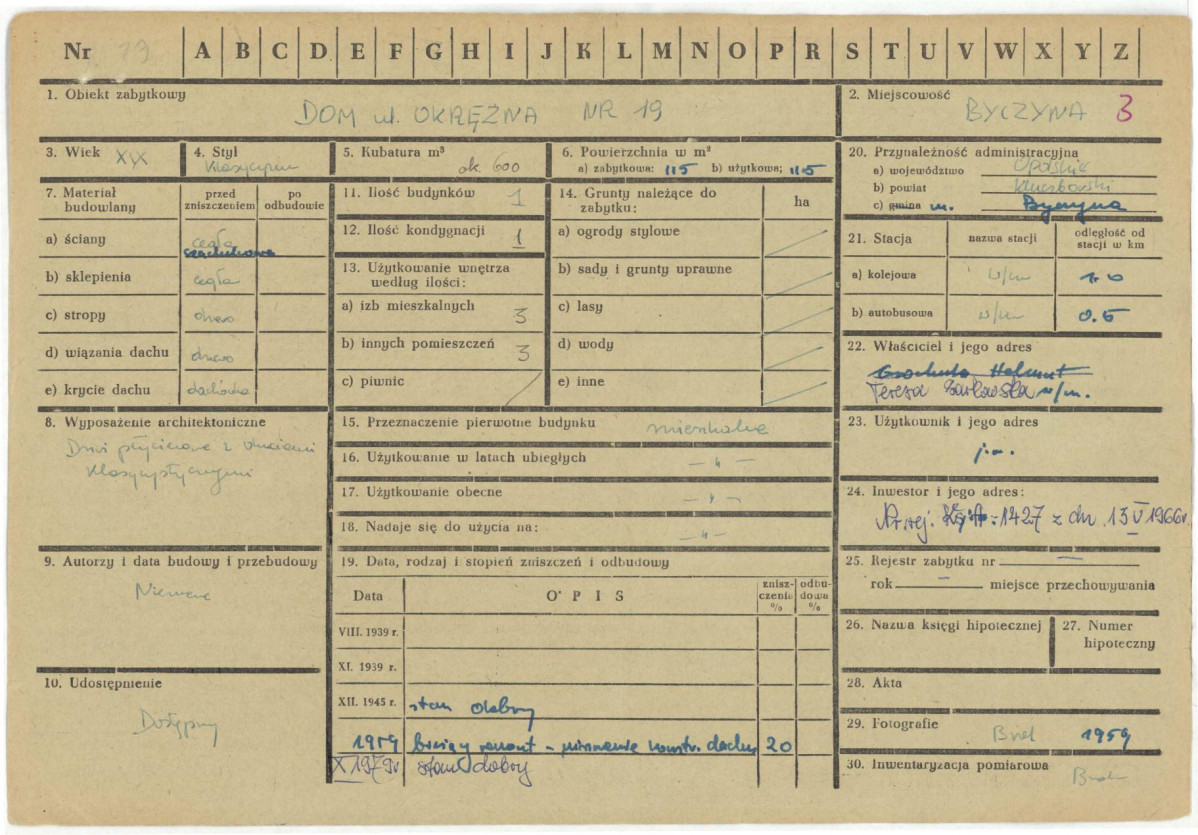 Nr 19 A B C D E F G H I J K L M N O P R S T U V W X Y Z
1. Obiekt zabytkowy
DOM ul. OKRĘŻNA NR 19
2. Miejscowość
BYCZYNA 3
3. Wiek XIX
4. Styl
Klasycyzm
5. Kubatura m³
ok. 600
6. Powierzchnia w m²
a) zabytkowa: 115 b) użytkowa; 115
20. Przynależność administracyjna
a) województwo Opolskie
b) powiat Kluczborski
c) gmina m. Byczyna
7. Materiał budowlany
przed zniszczeniem
po odbudowie
a) ściany cegła
szachulcowa
b) sklepienia cegła
c) stropy drewo
d) wiązania dachu drewo
e) krycie dachu dachówka
11. Ilość budynków 1
12. Ilość kondygnacji 1
13. Użytkowanie wnętrza
według ilości:
a) izb mieszkalnych 3
b) innych pomieszczeń 3
c) piwnic /
14. Grunty należące do
zabytku:
ha
a) ogrody stylowe
b) sady i grunty uprawne
c) lasy
d) wody
e) inne
21. Stacja
nazwa stacji
odległość od
stacji w km
a) kolejowa w/m 1.0
b) autobusowa w/m 0.5
22. Właściciel i jego adres
Helmut
Teresa w/m.
8. Wyposażenie architektoniczne
Drzwi płycinowe z okuciami
klasycystycznymi
15. Przeznaczenie pierwotne budynku mieszkalne
16. Użytkowanie w latach ubiegłych — " —
17. Użytkowanie obecne — " —
18. Nadaje się do użycia na: — " —
23. Użytkownik i jego adres
j.w.
24. Inwestor i jego adres:
1427 z dn. 13 V 1966r.
9. Autorzy i data budowy i przebudowy
Nieznane
19. Data, rodzaj i stopień zniszczeń i odbudowy
Data
O P I S
znisz-
czenia
%
odbu-
dowa
%
VIII. 1939 r.
XI. 1939 r.
XII. 1945 r. stan dobry
1959 bieżący remont – konstr. dachu 20
X 1979r stan dobry
25. Rejestr zabytku nr —
rok — miejsce przechowywania
26. Nazwa księgi hipotecznej
27. Numer
hipoteczny
28. Akta
10. Udostępnienie
Dostępny
29. Fotografie
Brak 1959
30. Inwentaryzacja pomiarowa
Brak